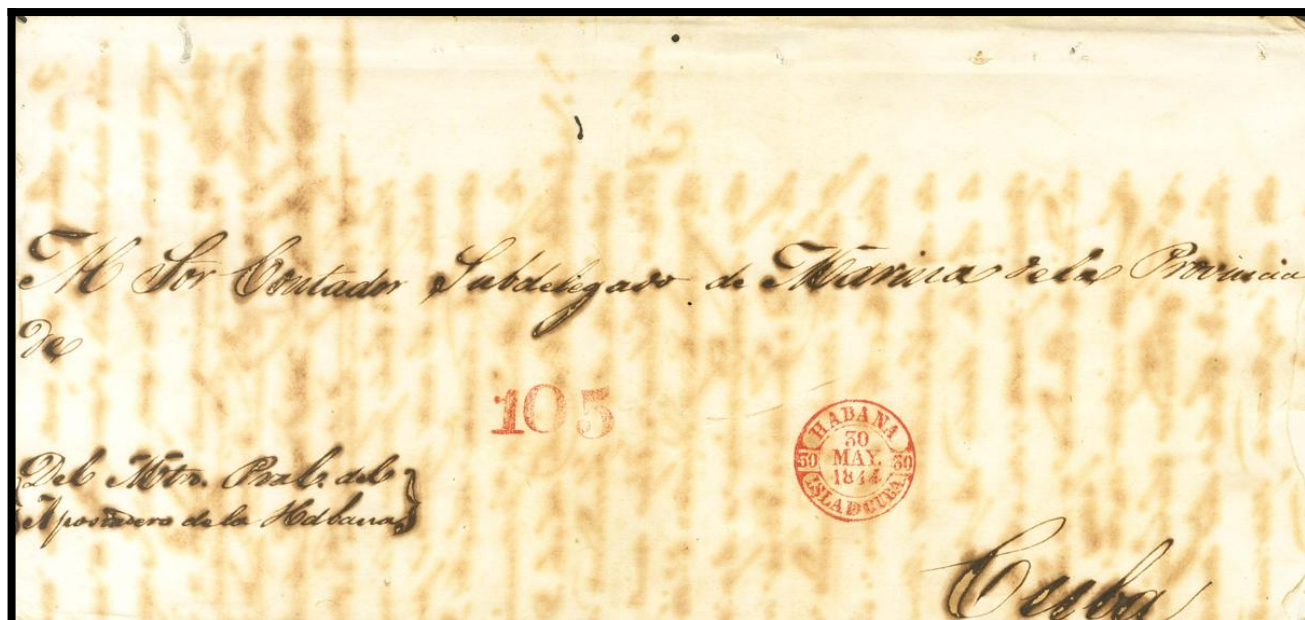 Al Sor Contador Subdelegado de Marina de la Provincia
de
105
HABANA
30
MAY.
1844
30 30
ISLA D CUBA
Del Mtro. Pral. del
Apostadero de la Habana
Cuba